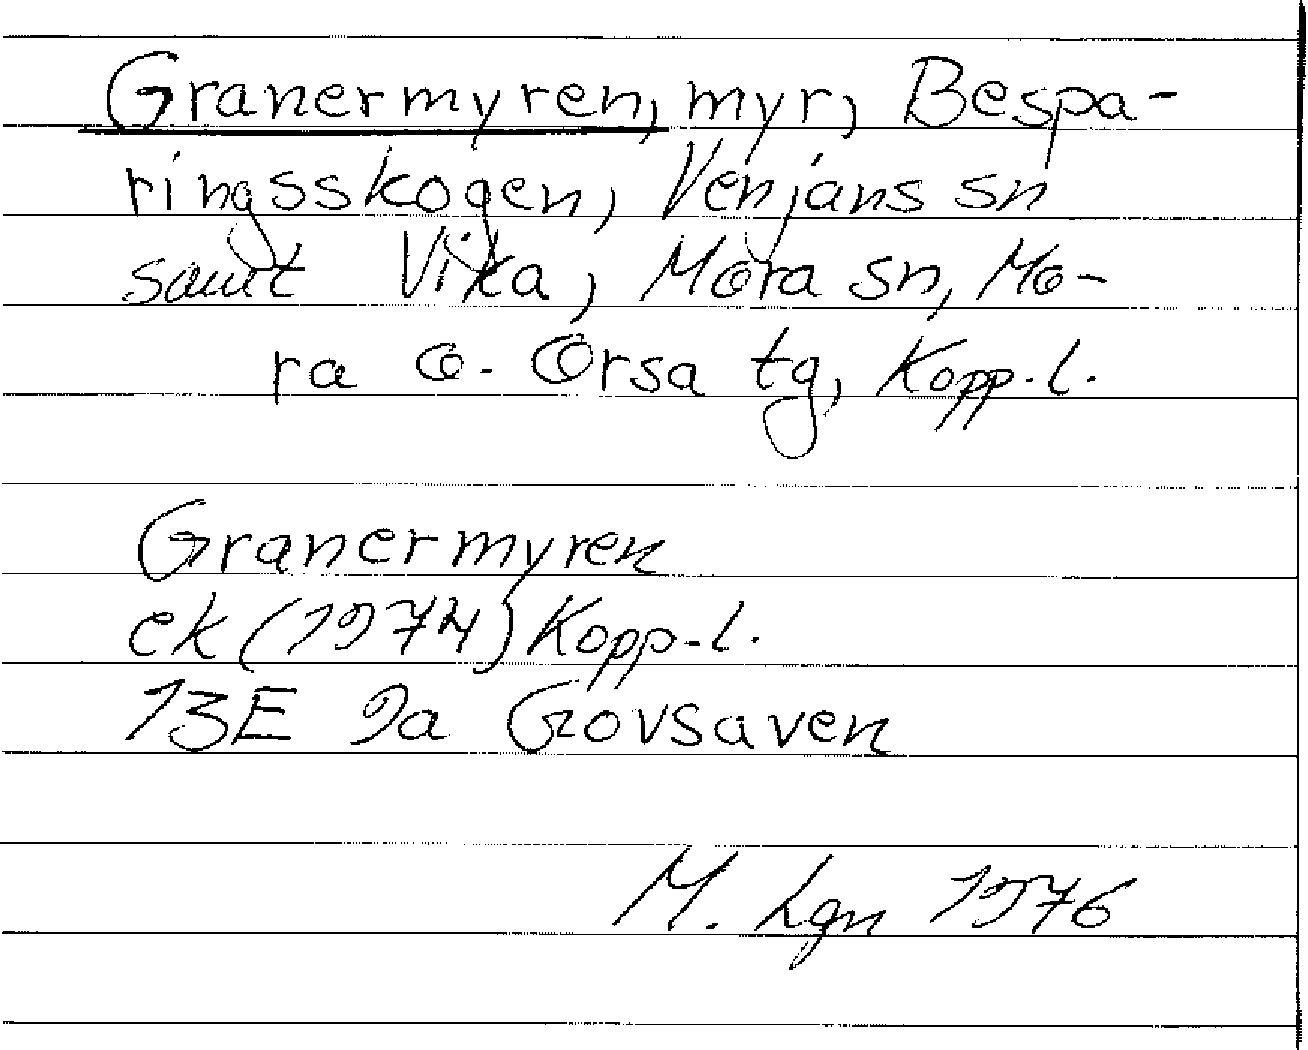 Granermyren, myr, Bespa-
ringsskogen, Venjans sn
samt Vika, Mora sn, Mo-
ra o. Orsa tg, Kopp. l.
Granermyren
ek (1974) Kopp-l.
13E 9a Gåvsaven
M. Lgn 1976